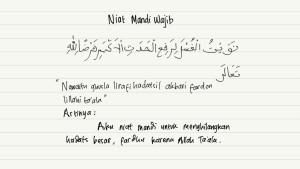 Niat Mandi Wajib
نَوَيْتُ الْغُسْلَ لِرَفْعِ الْحَدَثِ الْاَكْبَرِ فَرْضًا لِلّٰهِ
تَعَالَى
"Nawaitu gusla lirafi hadatsil akbari fardon
lillahi ta'ala"
Artinya:
Aku niat mandi untuk menghilangkan
hadats besar, fardhu karena Allah Ta'ala.